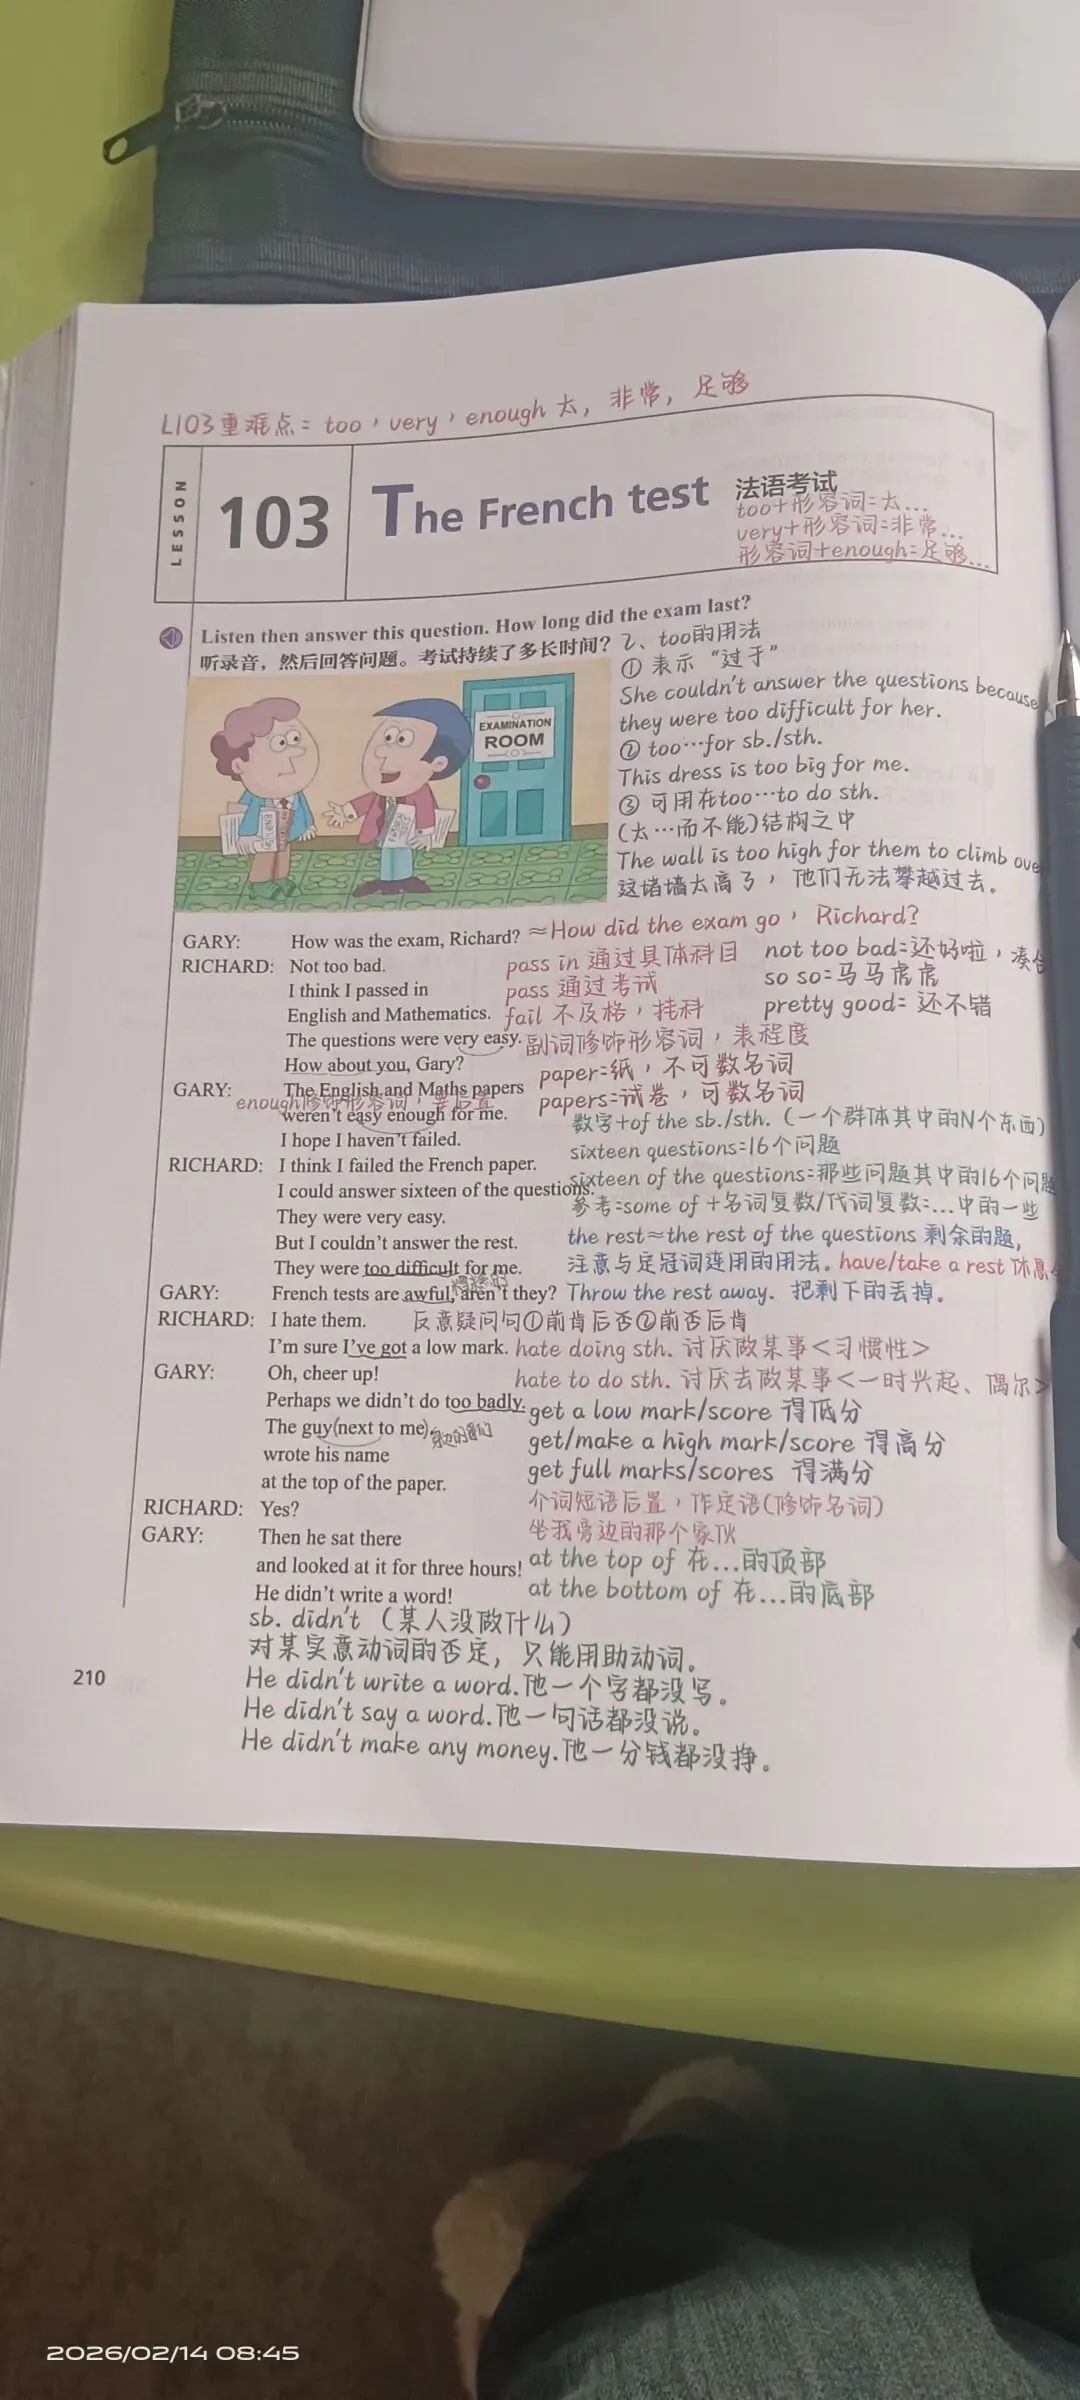 L103重难点=too,very,enough 太，非常，足够
LESSON
103
The French test 法语考试
too+形容词=太...
very+形容词=非常...
形容词+enough=足够...
Listen then answer this question. How long did the exam last?
听录音，然后回答问题。考试持续了多长时间？
2、too的用法
① 表示“过于”
She couldn't answer the questions because
they were too difficult for her.
② too…for sb./sth.
This dress is too big for me.
③ 可用在too…to do sth.
(太…而不能)结构之中
The wall is too high for them to climb ove
这堵墙太高了，他们无法攀越过去。
EXAMINATION
ROOM
GARY: How was the exam, Richard? ≈How did the exam go, Richard?
RICHARD: Not too bad. pass in 通过具体科目 not too bad=还好啦，凑合
I think I passed in pass 通过考试 so so=马马虎虎
English and Mathematics. fail 不及格，挂科 pretty good= 还不错
The questions were very easy. 副词修饰形容词，表程度
How about you, Gary? paper=纸，不可数名词
GARY: The English and Maths papers papers=试卷，可数名词
enough修饰形容词，要后置
weren't easy enough for me. 数字+of the sb./sth.（一个群体其中的N个东西）
I hope I haven't failed. sixteen questions=16个问题
RICHARD: I think I failed the French paper. sixteen of the questions=那些问题其中的16个问题
I could answer sixteen of the questions. 参考:some of +名词复数/代词复数=...中的一些
They were very easy. the rest≈the rest of the questions 剩余的题,
But I couldn't answer the rest. 注意与定冠词连用的用法。have/take a rest 休息
They were too difficult for me.
GARY: French tests are awful, aren't they? Throw the rest away. 把剩下的丢掉。
RICHARD: I hate them. 反意疑问句①前肯后否②前否后肯
I'm sure I've got a low mark. hate doing sth. 讨厌做某事<习惯性>
GARY: Oh, cheer up! hate to do sth. 讨厌去做某事<一时兴起、偶尔>
Perhaps we didn't do too badly. get a low mark/score 得低分
The guy(next to me) get/make a high mark/score 得高分
wrote his name get full marks/scores 得满分
at the top of the paper.
RICHARD: Yes? 介词短语后置，作定语(修饰名词)
GARY: Then he sat there 坐我旁边的那个家伙
and looked at it for three hours! at the top of 在...的顶部
He didn't write a word! at the bottom of 在...的底部
sb. didn't（某人没做什么）
对某实意动词的否定，只能用助动词。
210
He didn't write a word.他一个字都没写。
He didn't say a word.他一句话都没说。
He didn't make any money.他一分钱都没挣。
2026/02/14 08:45